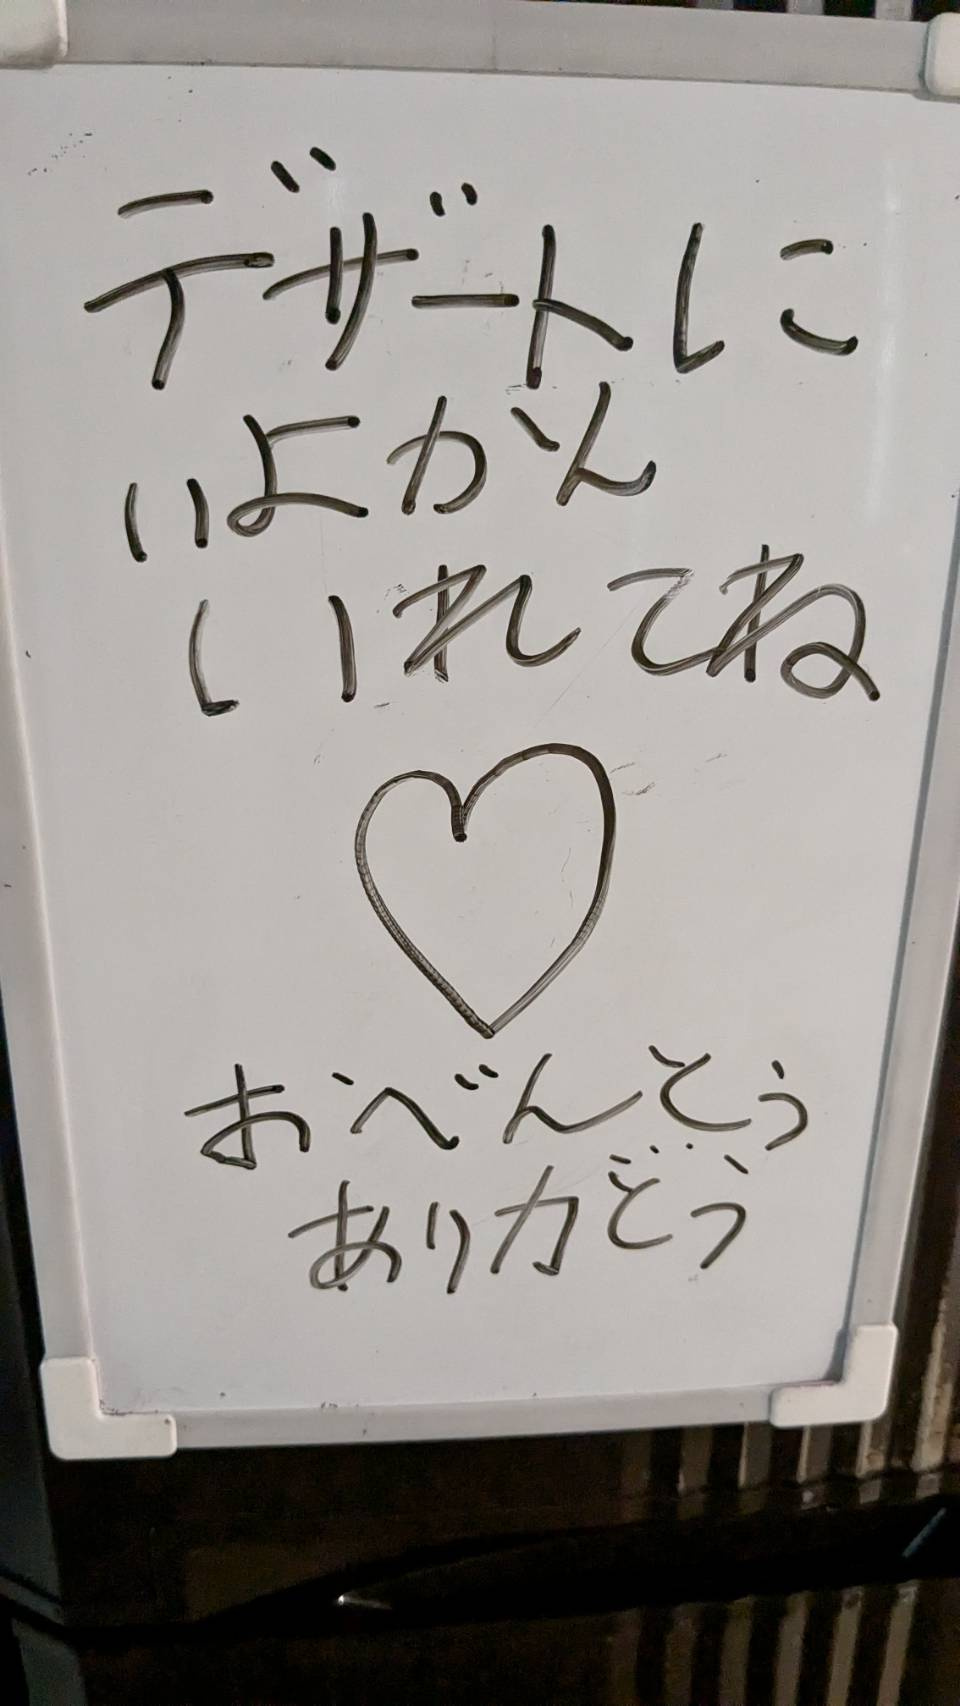 デザートに
いよかん
いれてね
おべんとう
ありがどう